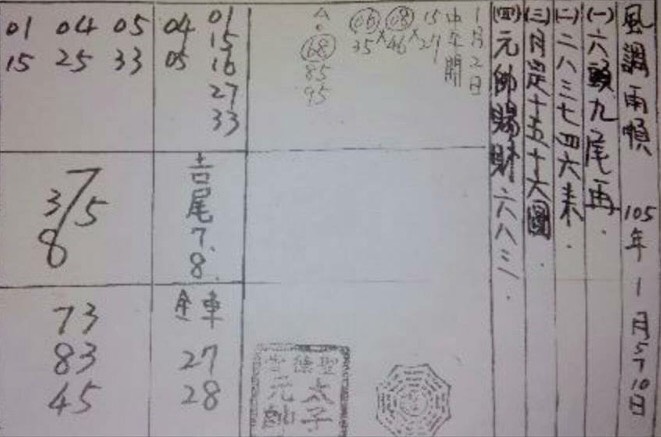 風調雨順 105年1月5~10日
(一)六頭九尾再.
(二)二八三七四六來.
(三)月是十五十六圓
(四)元帥賜財六八三.
1月2日
中午開
15 27
08 46
06 35
68
85
95
01
15
16
27
33
04
05
01 04 05
15 25 33
吉尾7.8.
7
3/5
8
全車
27
28
73
83
45
聖德堂
太子元帥